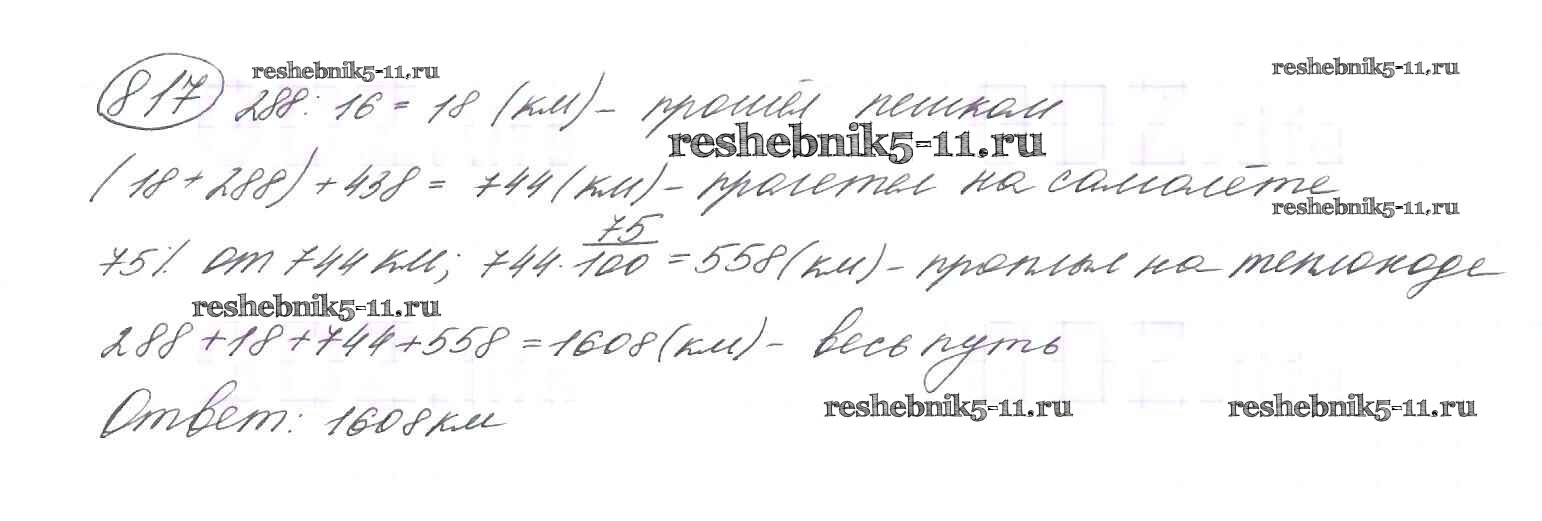 817 reshebnik5-11.ru reshebnik5-11.ru
288 : 16 = 18 (км) – прошёл пешком
reshebnik5-11.ru
(18 + 288) + 438 = 744 (км) – пролетел на самолёте
reshebnik5-11.ru
75% от 744 км; 744 · 75/100 = 558 (км) – проплыл на теплоходе
reshebnik5-11.ru
288 + 18 + 744 + 558 = 1608 (км) – весь путь
reshebnik5-11.ru reshebnik5-11.ru
Ответ: 1608 км